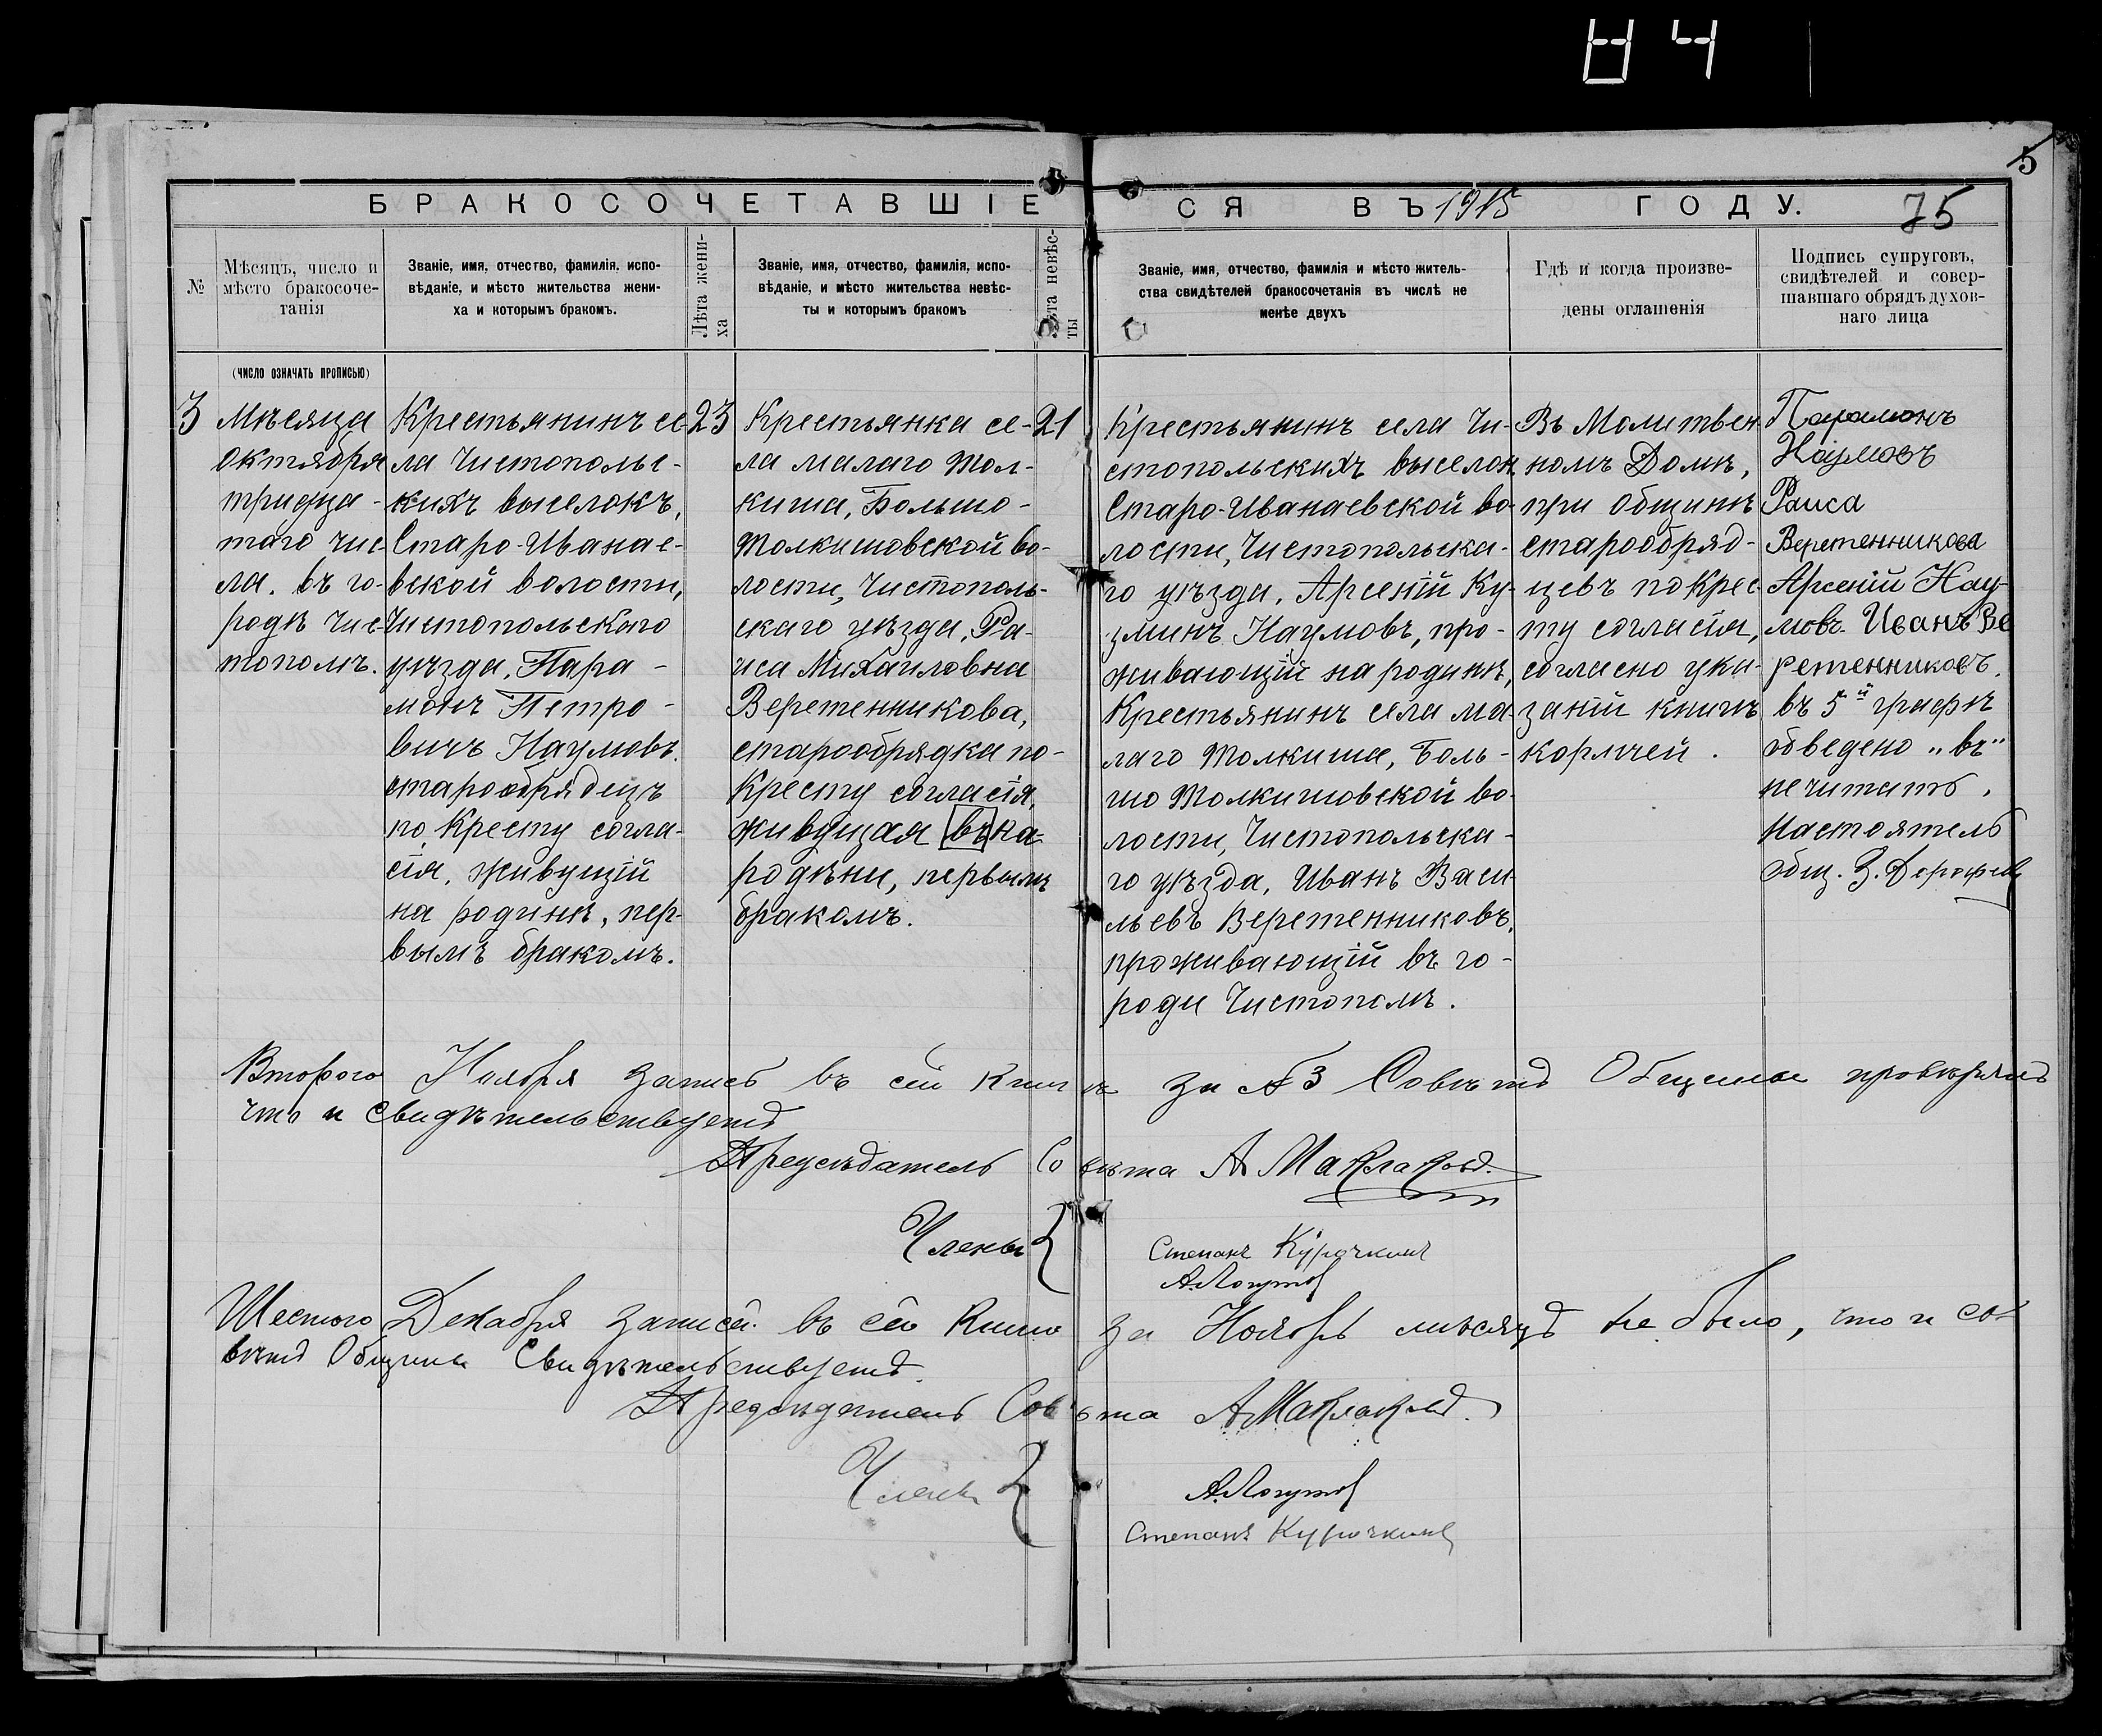 5
БРАКОСОЧЕТАВШІЕСЯ ВЪ 1915 ГОДУ.
75
№
Мѣсяцъ, число и
мѣсто бракосоче-
танія
Званіе, имя, отчество, фамилія, испо-
вѣданіе, и мѣсто жительства жени-
ха и которымъ бракомъ.
Лѣта жени-
ха
Званіе, имя, отчество, фамилія, испо-
вѣданіе, и мѣсто жительства невѣс-
ты и которымъ бракомъ
Лѣта невѣс-
ты
Званіе, имя, отчество, фамилія и мѣсто житель-
ства свидѣтелей бракосочетанія въ числѣ не
менѣе двухъ
Гдѣ и когда произве-
дены оглашенія
Подпись супруговъ,
свидѣтелей и совер-
шавшаго обрядъ духов-
наго лица
(ЧИСЛО ОЗНАЧАТЬ ПРОПИСЬЮ)
3
Мѣсяца
Октября
тридца-
таго чис-
ла. въ го-
родѣ Чис-
тополѣ.
Крестьянинъ се-
ла Чистопольс-
кихъ выселокъ,
Старо-Иванае-
вской волости,
Чистопольскаго
уѣзда, Пара-
монъ Петро-
вичъ Наумовъ.
старообрядецъ
по Кресту согла-
сія, живущій
на родинѣ, пер-
вымъ бракомъ.
23
Крестьянка се-
ла малаго Тол-
киша, Больше-
Толкишовской во-
лости, Чистополь-
скаго уѣзда, Ра-
иса Михаиловна
Веретенникова,
старообрядка по-
Кресту согласія,
живущая въ на
родѣни, первымъ
бракомъ.
21
Крестьянинъ села Чи-
стопольскихъ выселок
Старо-Иванаевской во-
лости, Чистопольска-
го уѣзда, Арсеній Ку-
зминъ Наумовъ, про-
живающій на родинѣ,
Крестьянинъ села ма-
лаго Толкиша, Боль-
шо Толкишовской во-
лости, Чистопольска-
го уѣзда, Иванъ Васи
льевъ Веретенниковъ,
проживающій въ го-
роди Чистополѣ.
Въ Молитвен-
номъ Домѣ,
при Общинѣ
старообряд-
цевъ по Крес-
ту согласія,
согласно ука-
заній книги
кормчей.
Парамонъ
Наумовъ
Раиса
Веретенникова
Арсеній Нау-
мовъ. Иванъ Ве
ретенниковъ.
въ 5й графѣ
обведено „въ"
не читать.
Настоятель
общ. З. Дорофеев
Второго Ноября запись въ сей книгѣ за №3 Совѣтъ Общины провѣрялъ
что и свидѣтельствуетъ
Предсѣдатель Совѣта А Маклаковъ.
Члены
Степанъ Курочкинъ
А. Логутов
Шестого Декабря записей въ сію книгу за Ноябрь мѣсяцъ не было, что и со-
вѣтъ Общины Свидѣтельствуетъ.
Предсѣдатель Совѣта А Маклаковъ.
Члены
А. Логутов
Степанъ Курочкинъ